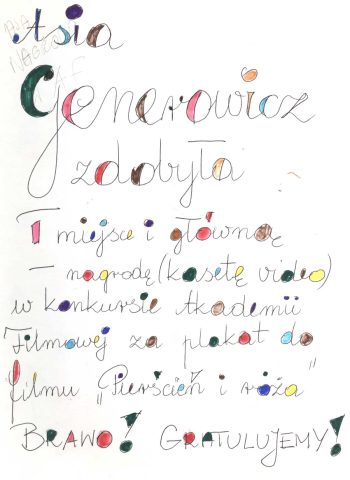 Asia
Generowicz
zdobyła
I miejsce i główną
– nagrodę (kasetę video)
w konkursie Akademii
Filmowej za plakat do
filmu „Pierścień i róża”
BRAWO! GRATULUJEMY!